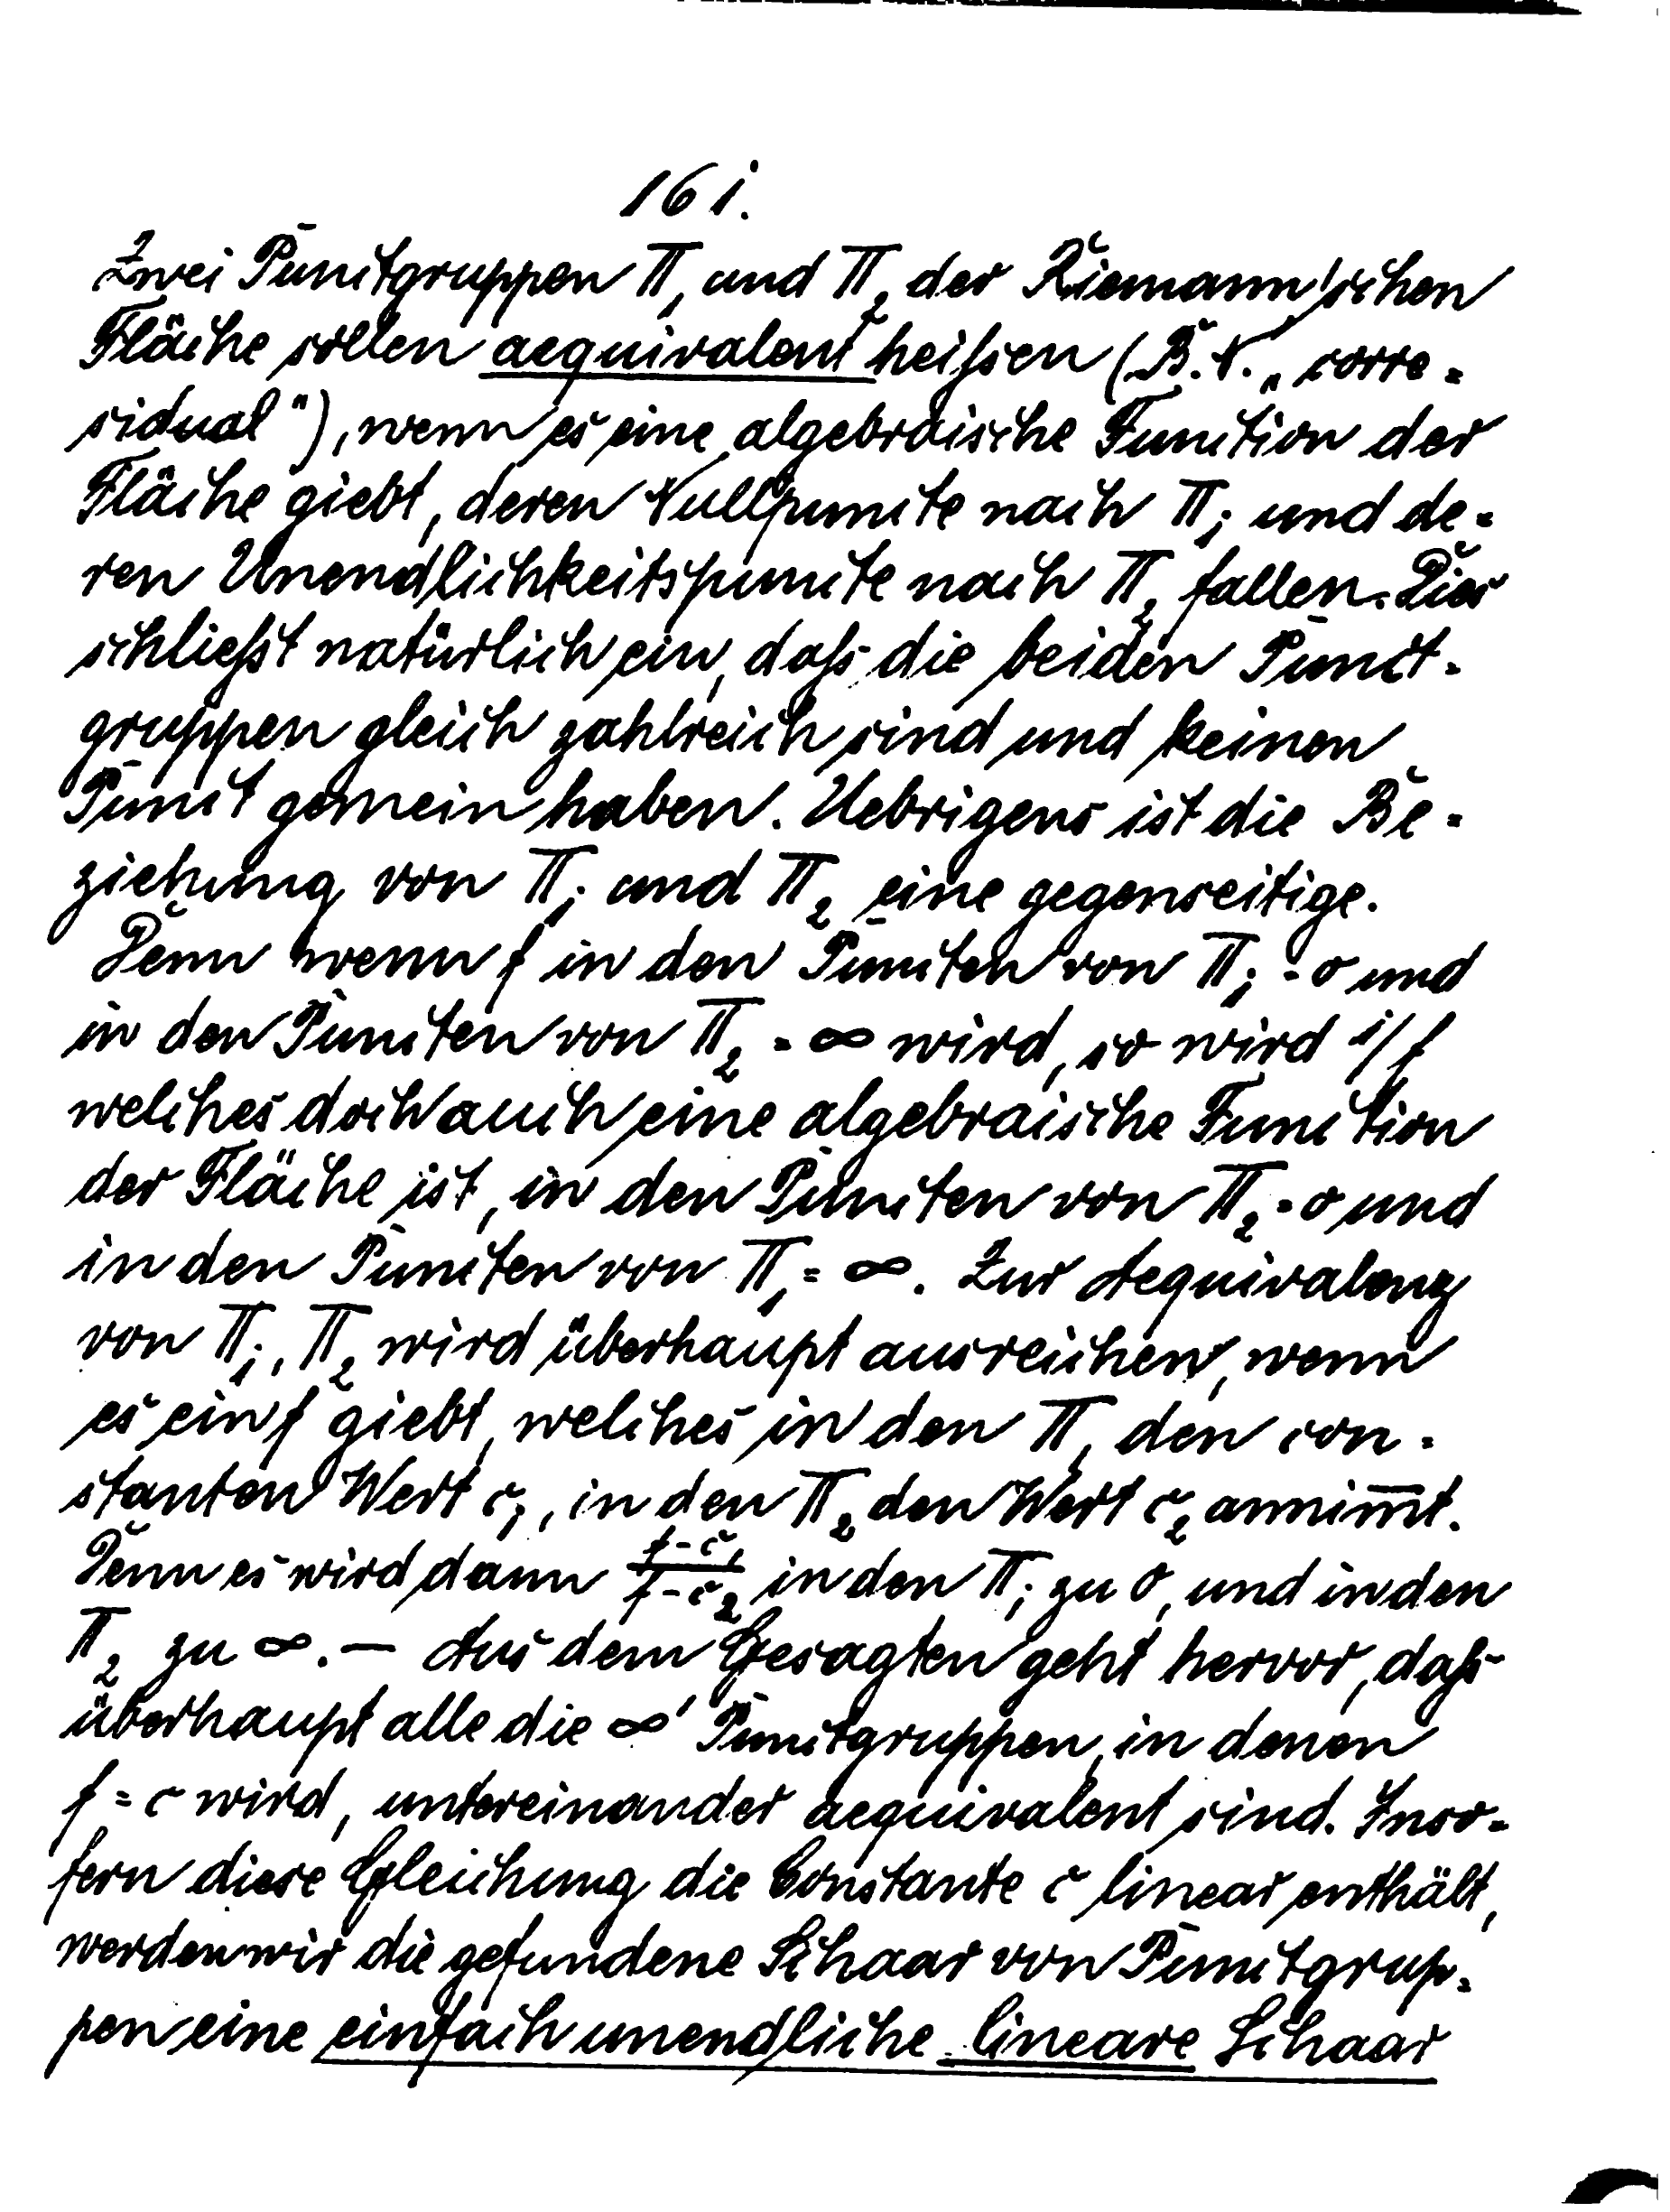 161.
Zwei Punctgruppen Π₁ und Π₂ der Riemann'schen
Fläche sollen aequivalent heißen (B.N. „corre=
sidual"), wenn es eine algebraische Function der
Fläche giebt, deren Nullpuncte nach Π₁ und de=
ren Unendlichkeitspuncte nach Π₂ fallen. Dies
schließt natürlich ein, daß die beiden Punct-
gruppen gleich zahlreich sind und keinen
Punct gemein haben. Uebrigens ist die Be=
ziehung von Π₁ und Π₂ eine gegenseitige.
Denn wenn f in den Puncten von Π₁ = 0 und
in den Puncten von Π₂ = ∞ wird, so wird 1/f
welches doch auch eine algebraische Function
der Fläche ist, in den Puncten von Π₂ = 0 und
in den Puncten von Π₁ = ∞. Zur Aequivalenz
von Π₁, Π₂ wird überhaupt ausreichen, wenn
es ein f giebt, welches in den Π₁ den con=
stanten Wert c₁, in den Π₂ den Wert c₂ annim̅t.
Denn es wird dann (f-c₁)/(f-c₂) in den Π₁ zu 0, und in den
Π₂ zu ∞. — Aus dem Gesagten geht hervor, daß
überhaupt alle die ∞¹ Punctgruppen, in denen
f = c wird, untereinander aequivalent sind. Inso=
fern diese Gleichung die Constante c linear enthält,
werden wir die gefundene Schaar von Punctgrup=
pen eine einfach unendliche lineare Schaar